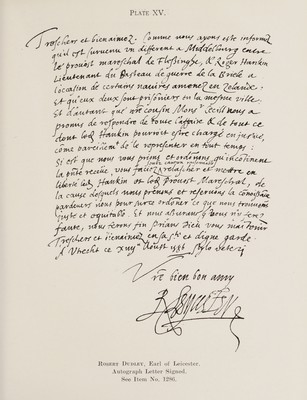 PLATE XV.
Treschers et bienaimez. Comme nous ayons este informé
qu'il est survenu un different a Middelbourg entre
le prouost mareschal de Flessinghe, et Roger Hankin
Lieutenant du Basteau de guerre de la Briele a
location de certains navires amenez en Zelande.
Et qu'eux deux sont prisoniers en la mesme ville.
Et d'autant que
promis de respondre de toute l'affaire & de tout ce
dont led. Hankin pourroit estre chargé en justice,
côme pareillemt de le representer en tout temps:
Si est que nous vous prions et ordonons qu'incontinent
la pnte receue, vous faciez relascher et mettre en
liberté led. Hankin et led. Prouost Mareschal, de
la cause desquels nous prenons et reservons la
pardevers nous pour sur ce ordoner ce que nous trouverons
juste et equitable. Et nous asseurans
faute, nous ferons fin prians Dieu vous maintenir
Treschers et bienaimez en sa ste et digne garde.
A Utrecht ce Aoust 1586 stylo veteri
Vre bien bon amy
R. Leycester
ROBERT DUDLEY, Earl of Leicester.
Autograph Letter Signed.
See Item No. 1286.